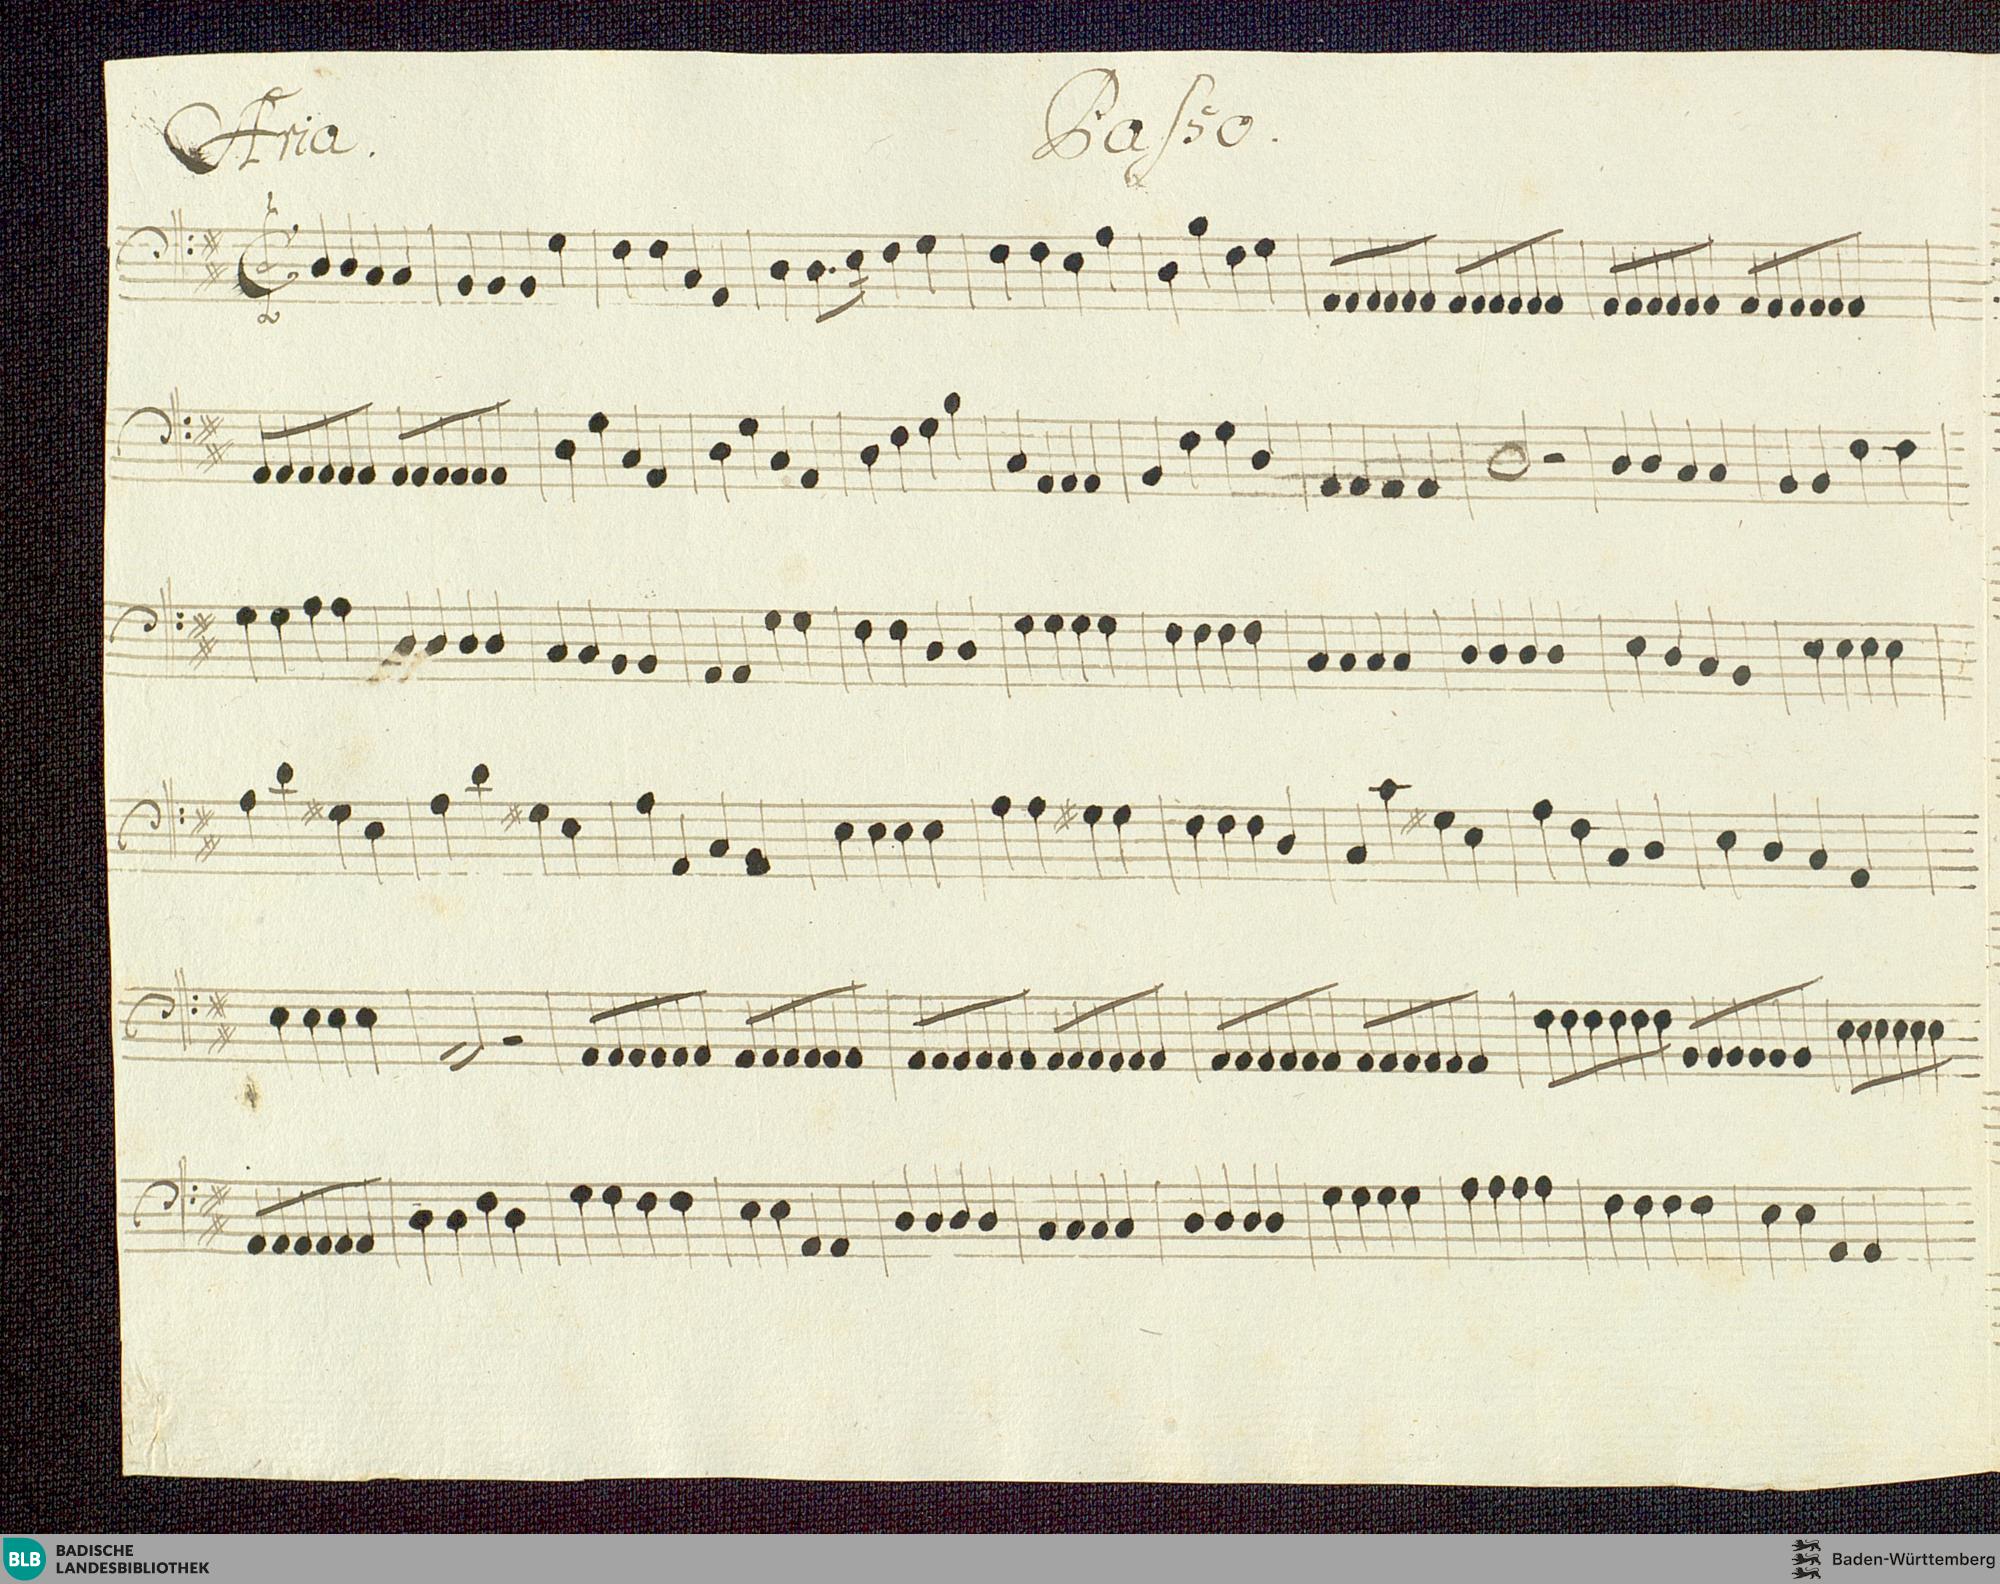 Aria. Basso.
BLB BADISCHE
LANDESBIBLIOTHEK
Baden-Württemberg